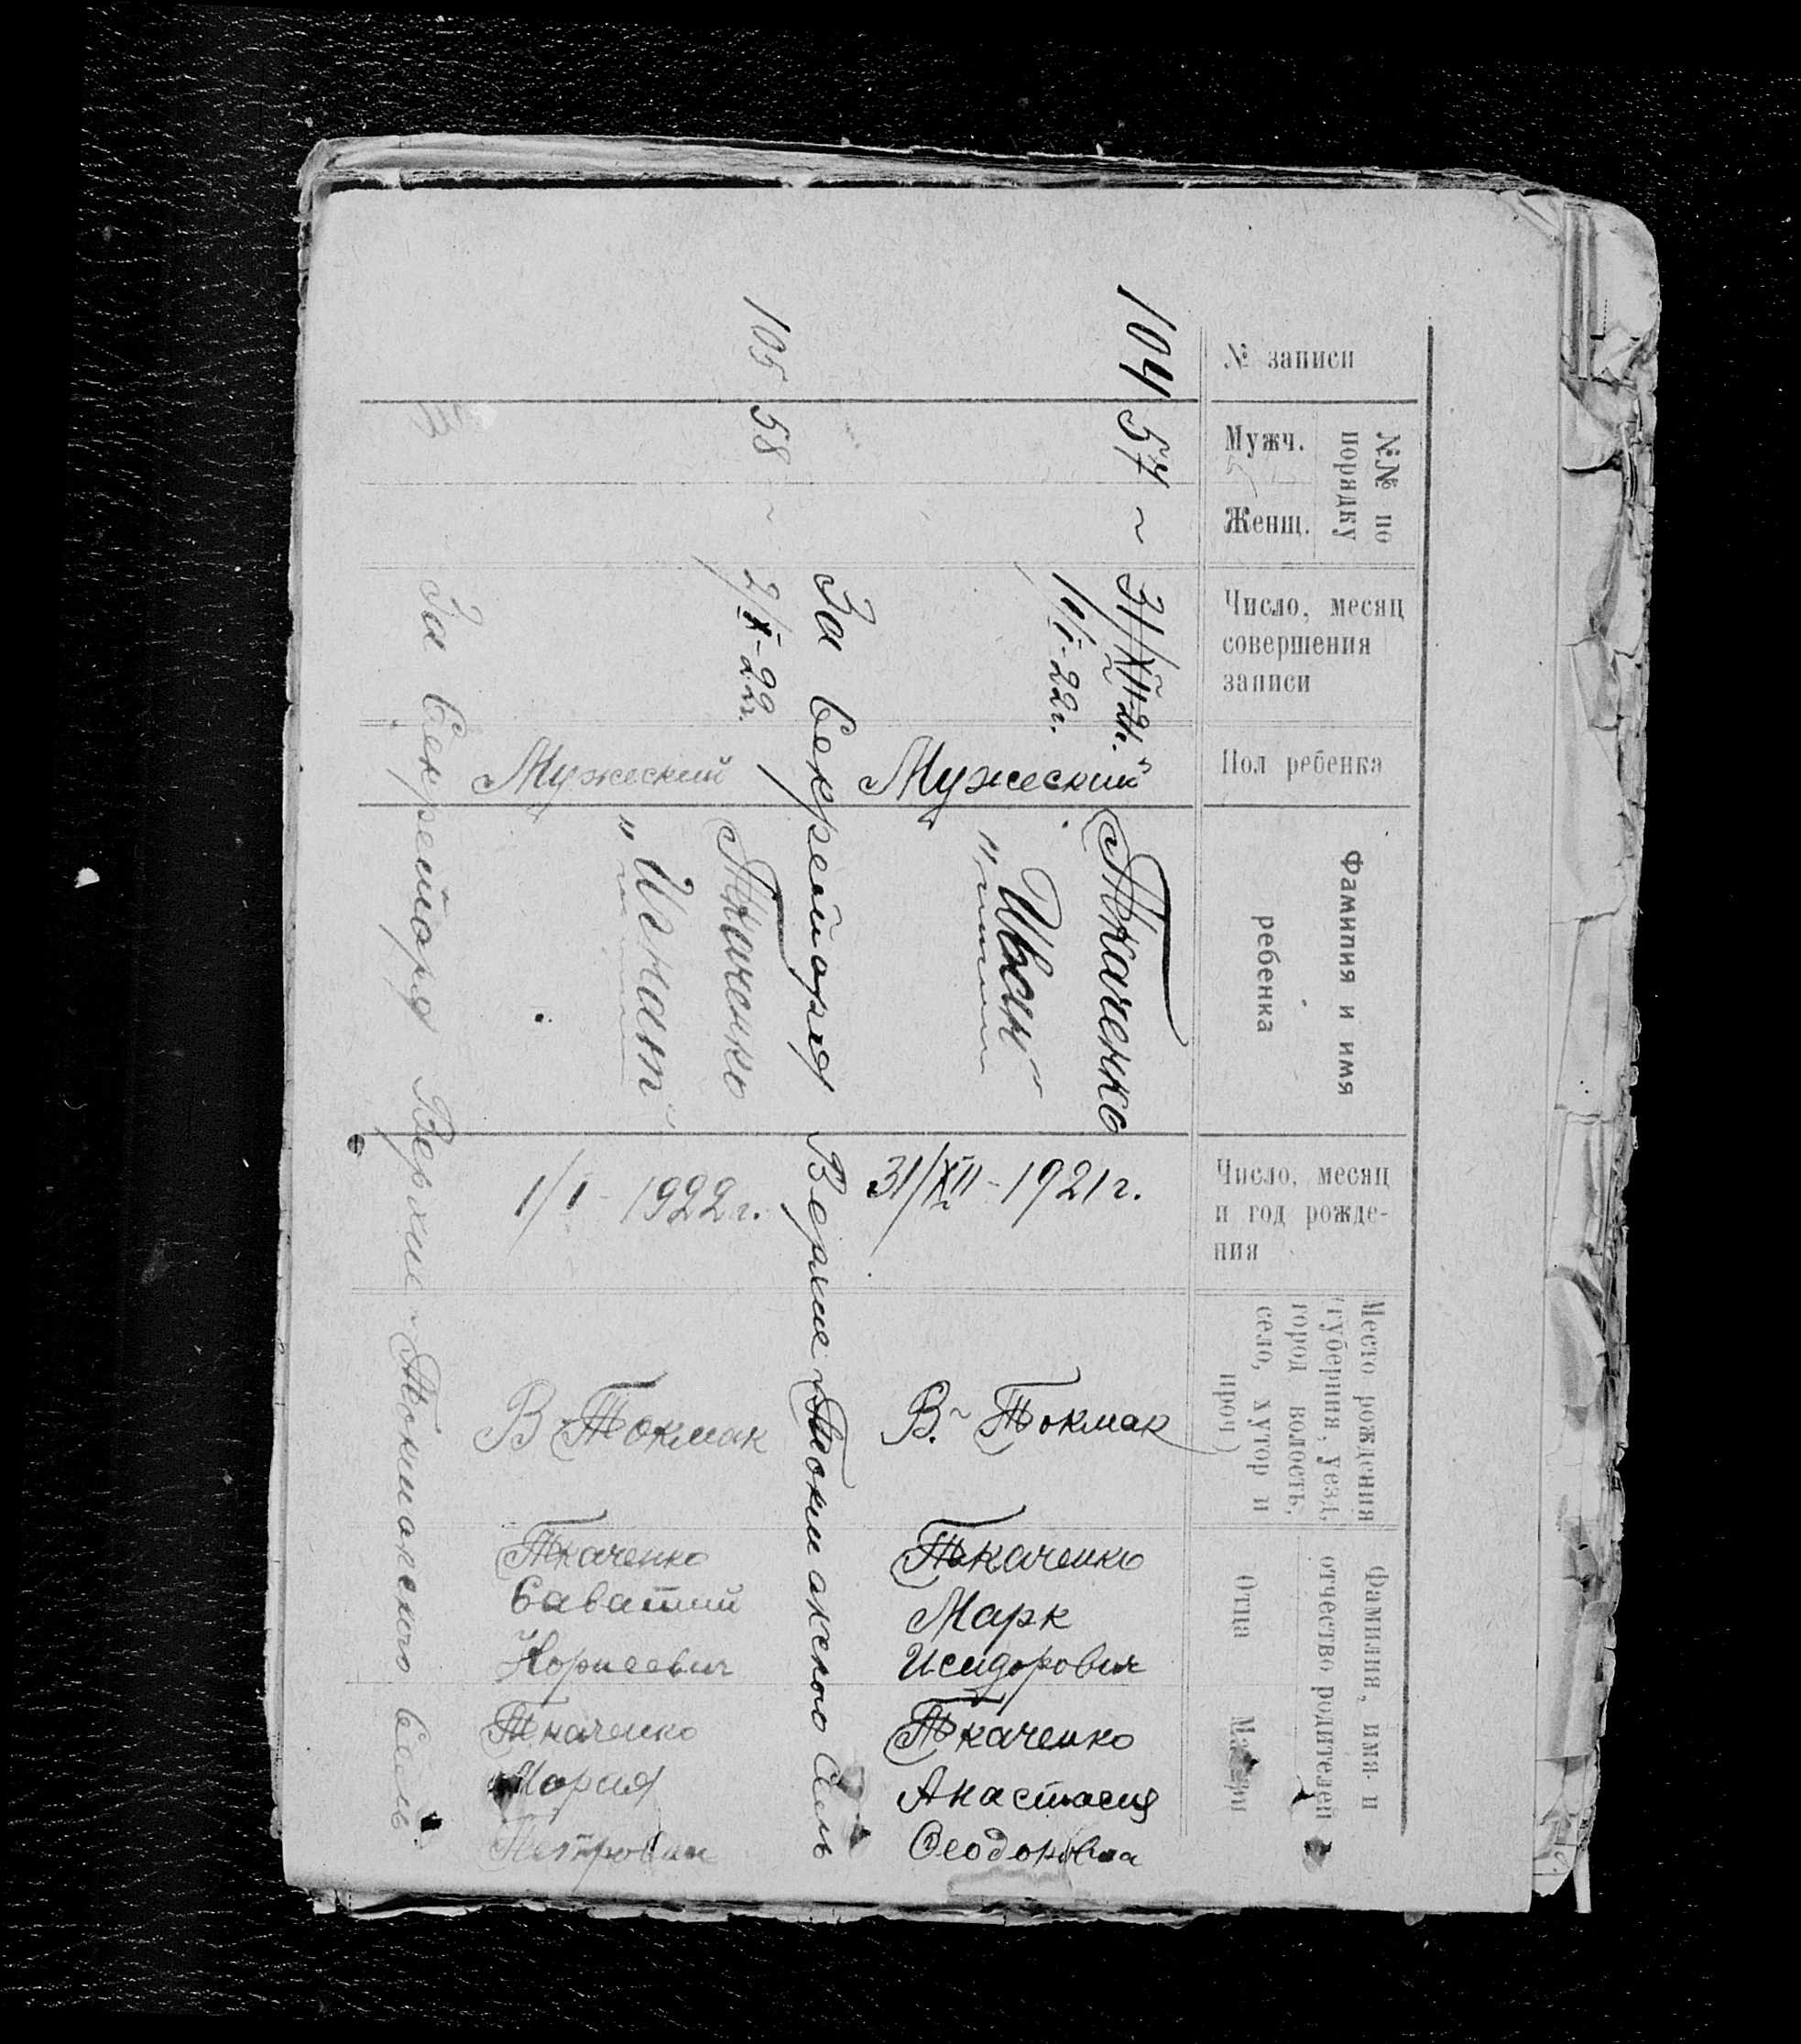 № записи
№№ по
порядку
Мужч.
Женщ.
Число, месяц
совершения
записи
Пол ребенка
Фамилия и имя
ребенка
Число, месяц
и год рожде-
ния
Место рождения
(губерния, уезд,
город волость,
село, хутор и
проч)
Фамилия, имя и
отчество родителей
Отца
Матери
104
57
~
31/XII 21г.
1/I-22г.
Мужеский
Ткаченко
"Иван"
31/XII-1921г.
В.-Токмак
Ткаченко
Марк
Исидорович
Ткаченко
Анастасия
Феодоровна
За Секретаря Верхне-Токмакского Сель
105
58
~
2/I-22г.
Мужеский
Ткаченко
"Игнат"
1/I-1922г.
В-Токмак
Ткаченко
Саватий
Корнеевич
Ткаченко
Мария
Петровна
За Секретаря Верхне-Токмакского Сель